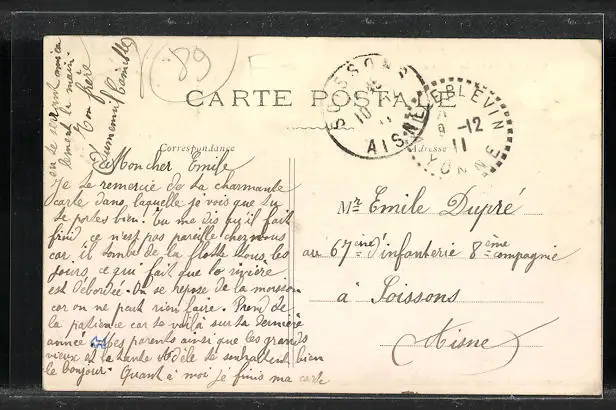 89
CARTE POSTALE
SOISSONS
AISNE
CHEBLEVIN
9 -12
11
YONNE
Correspondance
Adresse
Mon cher Emile
Je te remercie de ta charmante
carte dans laquelle je vois que tu
te portes bien. Tu me dis qu'il fait
froid ce n'est pas pareille chez nous
car il tombe de la flotte tous les
jours, ce qui fait que la rivière
est débordée. On se repose de la
car on ne peut rien faire. Prend de
la patience car te voilà sur ta dernière
année. Mes parents ainsi que les grands
vieux et la tante Adèle te souhaitent bien
le bonjour. Quant à moi je finis ma carte
en te serrant amica
lement la main.
Ton frère
Camille
Mr Emile Dupré
au 67ème d'infanterie 8ème compagnie
à Soissons
(Aisne)